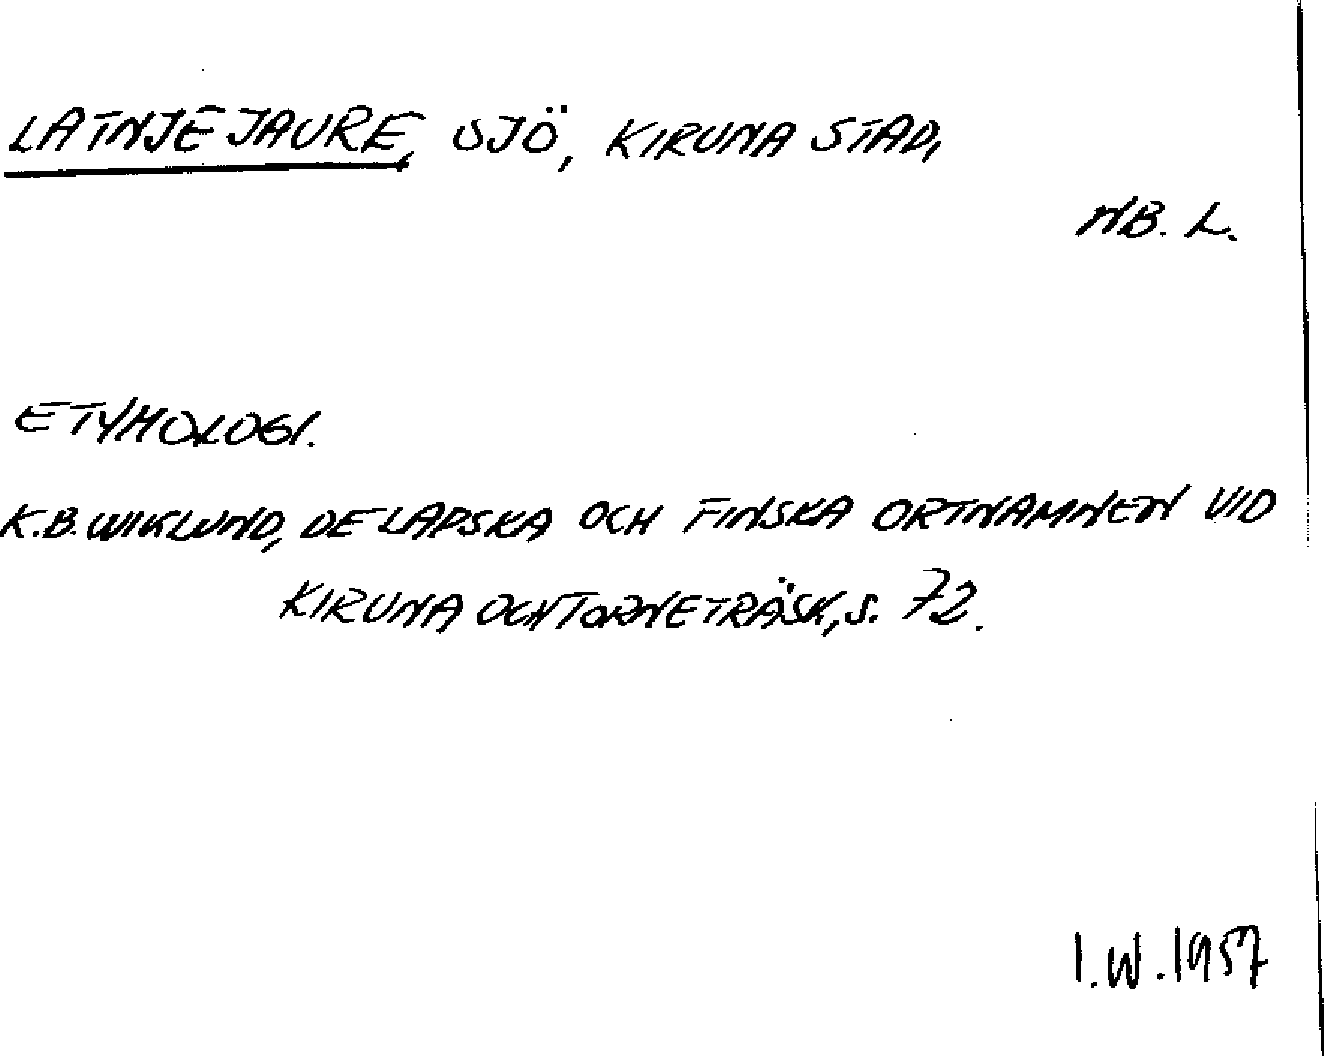 LATNJEJAURE, SJÖ, KIRUNA STAD,
NB. L.
ETYMOLOGI.
K.B. WIKLUND, DE LAPSKA OCH FINSKA ORTNAMNEN VID
KIRUNA OCH TORNETRÄSK, S. 72.
I.W. 1957